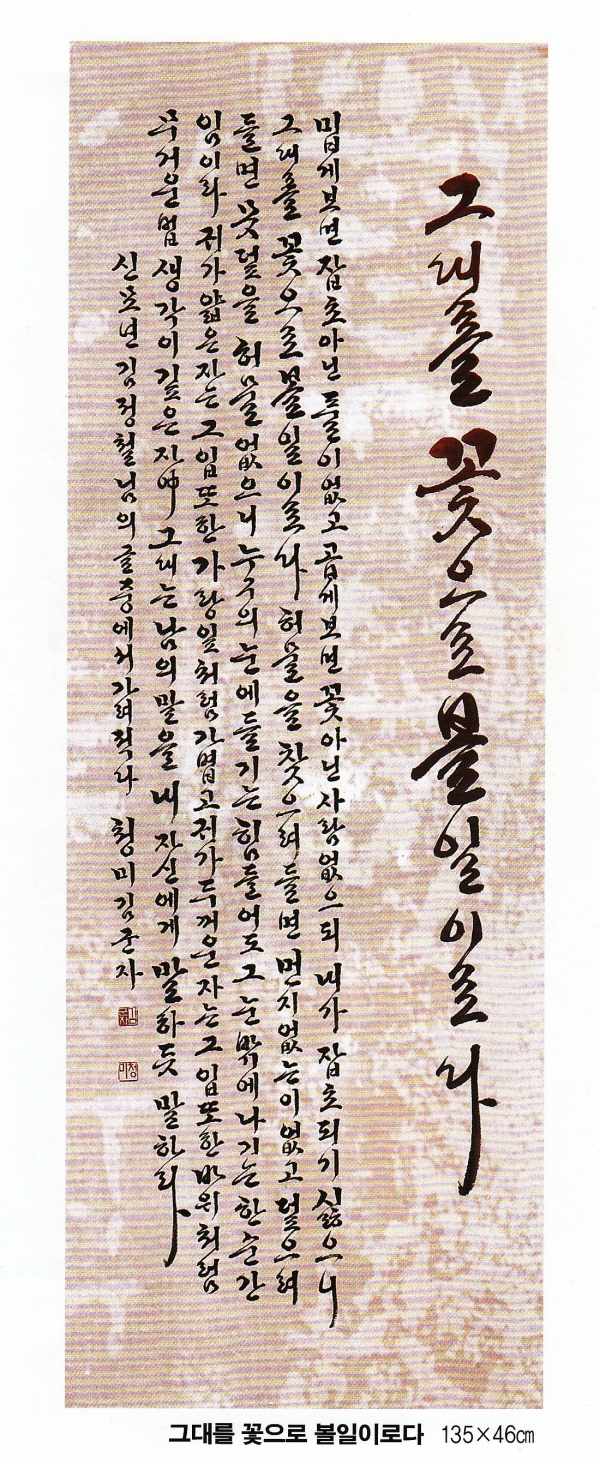 그대를 꽃으로 볼일이로다
밉게보면 잡초아닌 풀이없고 곱게보면 꽃아닌 사람없으되 내가 잡초되기 싫으니
그대를 꽃으로 볼일이로다 허물을 찾으려들면 먼지없는이없고 덮으려
들면 못덮을 허물없으니 누구의 눈에들기는 힘들어도 그 눈밖에나기는 한순간
임이라 귀가얇은자는 그입또한 가랑잎처럼가볍고 귀가두꺼운자는 그입또한 바위처럼
무거운법 생각이깊은자여 그대는남의말을 내 자신에게 말하듯 말하라
신묘년 김정철님의글중에서가려적다 청미김군자
그대를 꽃으로 볼일이로다 135×46㎝